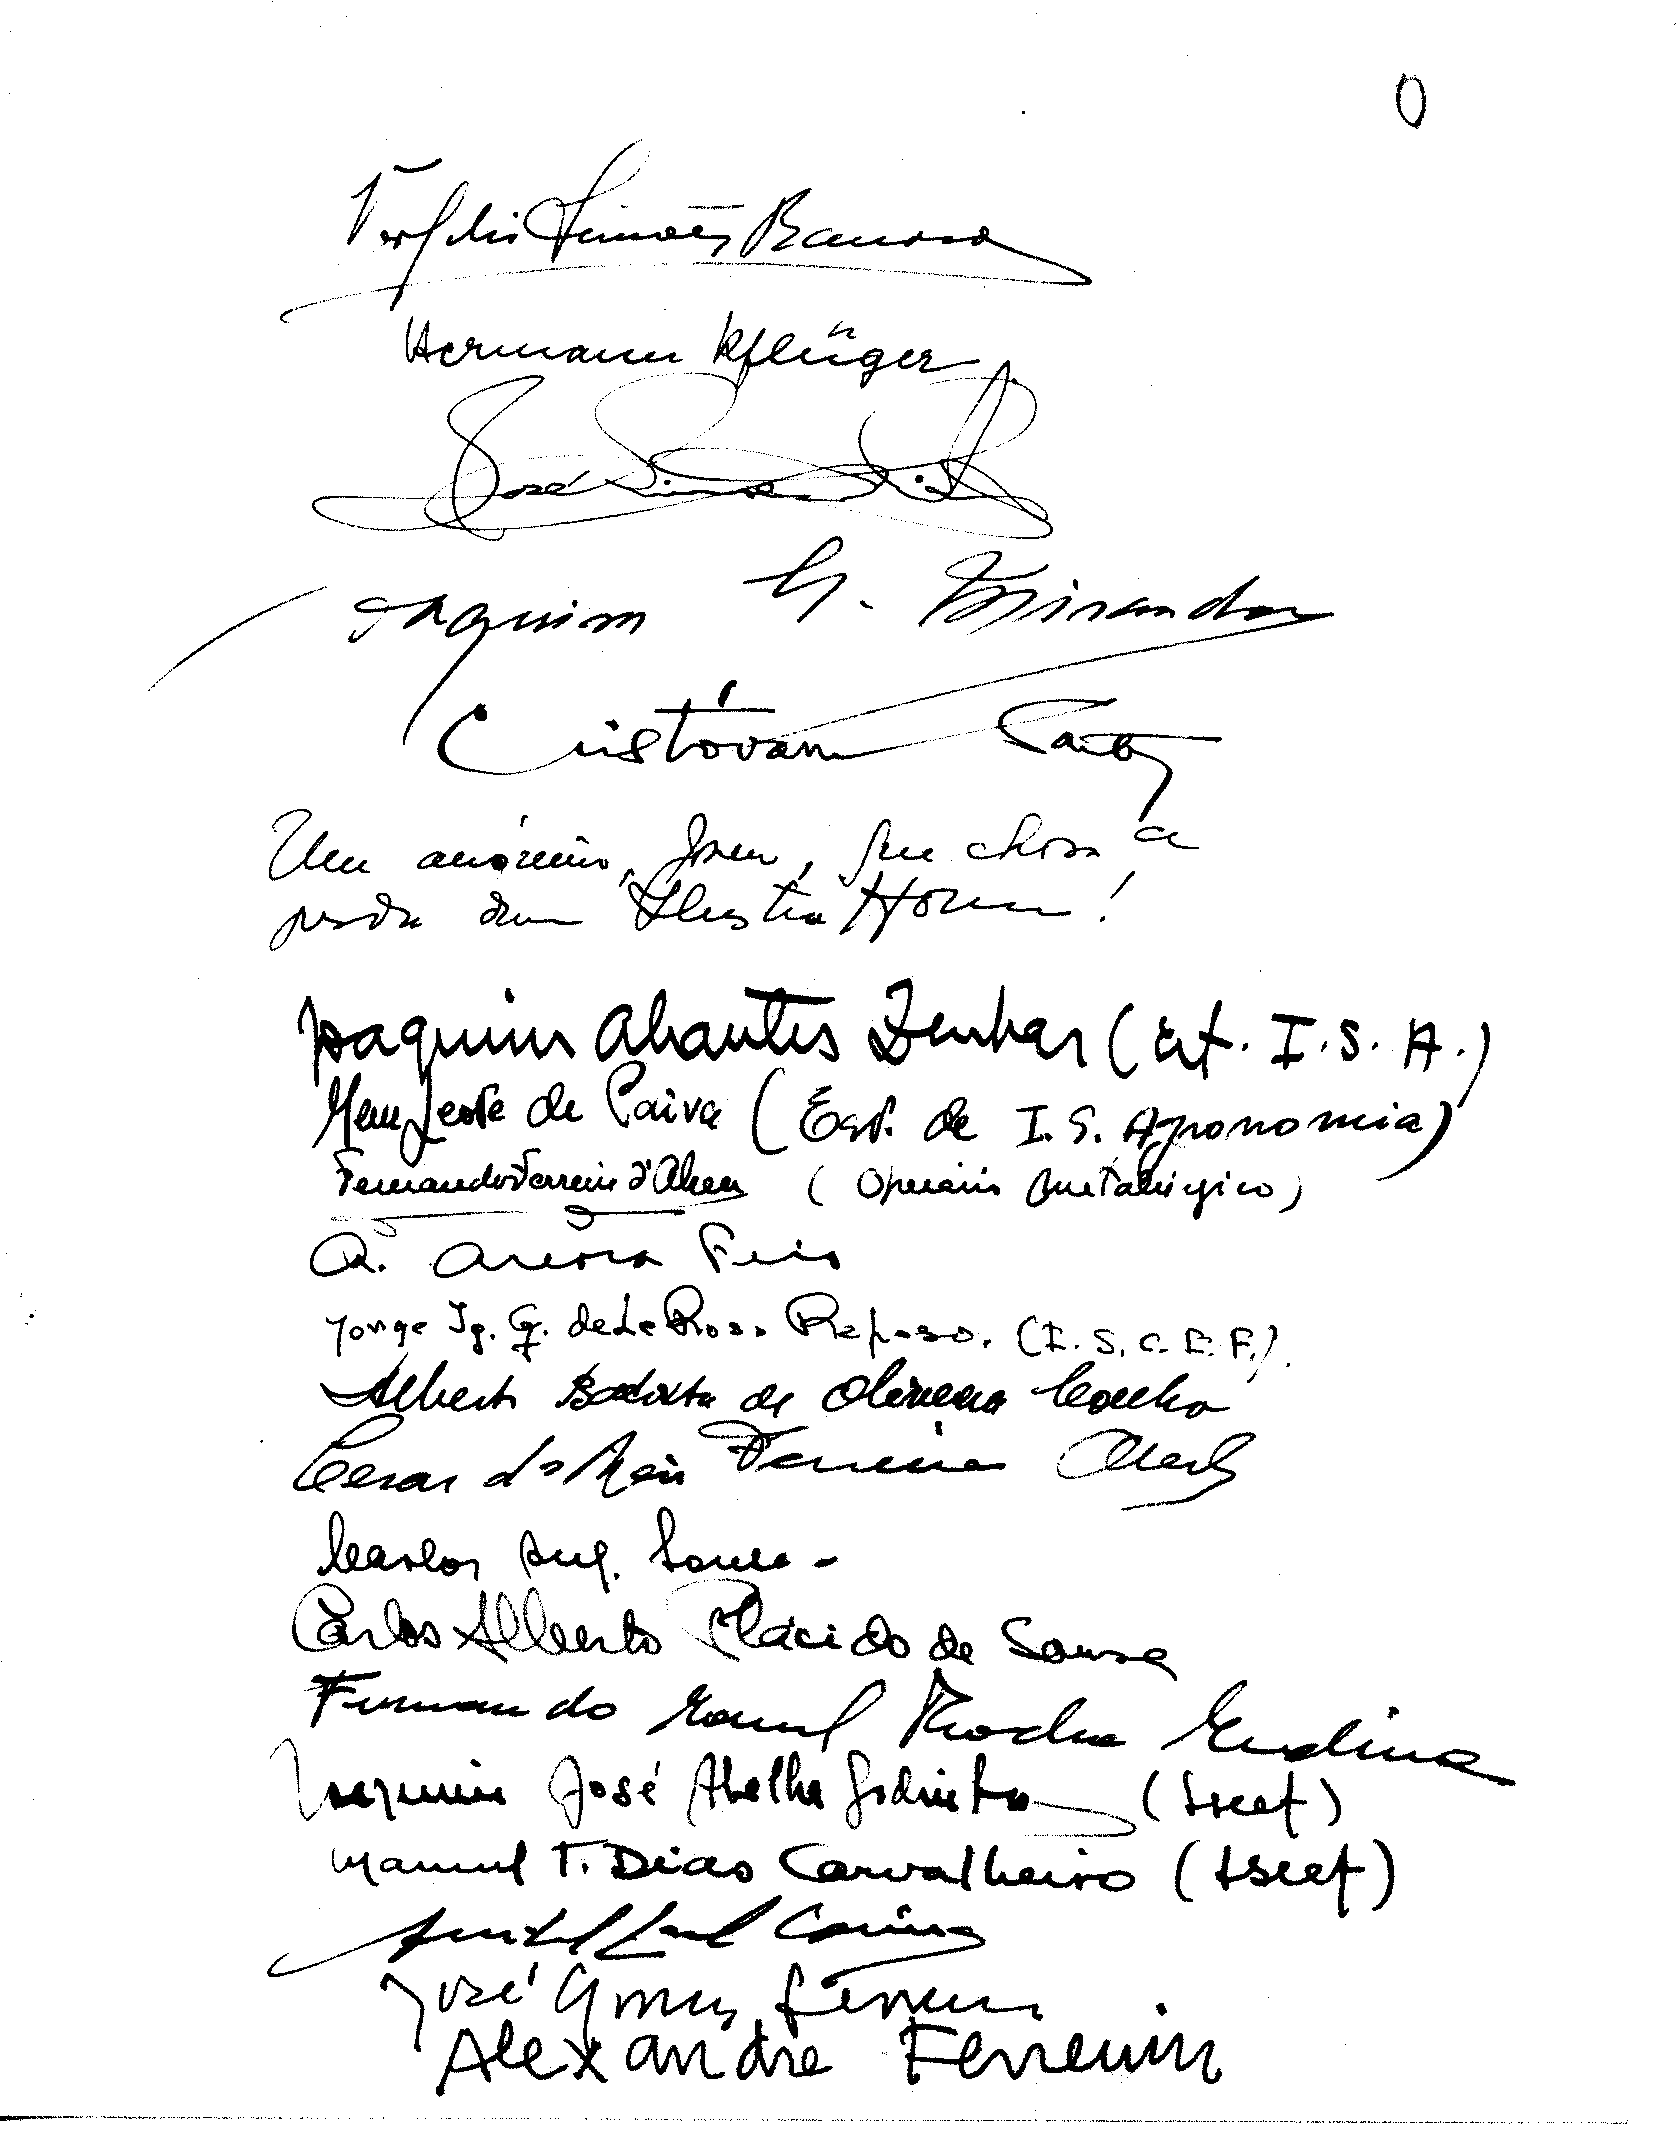 0
Simões
Hermann Pflüger
José
Joaquim G. Miranda
Cristóvam
Um anónimo, jovem, que chora a
perda dum Ilustre Homem!
Joaquim Abrantes (Est. I.S.A.)
de Paiva (Est. de I.S. Agronomia)
Fernando Ferreira d'Abreu (Operário Metalúrgico)
A. Areosa Feio
Jorge Ig. G. de La Rosa Raposo. (I.S.C.E.F.).
Alberto Batista de Oliveira Coelho
Cesar do Ferreira
Carlos Aug. Sousa -
Carlos Alberto Plácido de Sousa
Fernando Manuel Rocha Medina
Joaquim José Abelha Godinho (Iscef)
Manuel T. Dias Carvalheiro (Iscef)
José Gomes Ferreira
Alexandre Ferreira